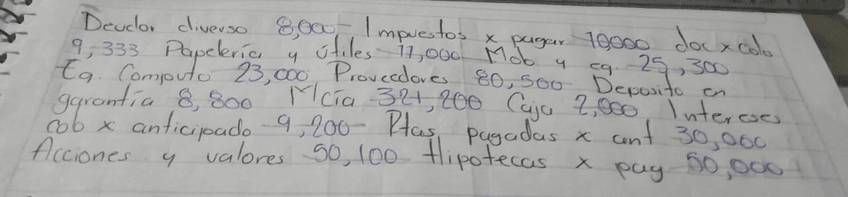 Deudor diverso 8,000 - Impuestos x pagar 10000 doc x cob
9,333 Papelería y útiles - 11,000 Mob y eq. 25,300
Eq. Computo 23,000 Proveedores 80,500 Deposito en
garantía 8,800 Mcía 321,200 Caja 2,000 Intereses
cob x anticipado 9,200 - Rtas pagadas x ant 30,000
Acciones y valores 50,100 Hipotecas x pag 50,000